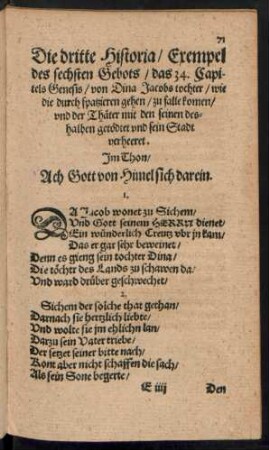 71
Die dritte Historia/ Exempel
des sechsten Gebots/ das 34. Capi-
tels Genesis/ von Dina Jacobs tochter/ wie
die durch spatzieren gehen/ zu falle komen/
vnd der Thäter mit den seinen des-
halben getödtet vnd sein Stadt
verheeret.
Im Thon/
Ach Gott von Himel sich darein.
1.
DA Jacob wonet zu Sichem/
Vnd Gott seinem HERRN dienet/
Ein wünderlich Creutz vbr jn kam/
Das er gar sehr beweinet/
Denn es gieng sein tochter Dina/
Die töcht des Lands zu schawen da/
Vnd ward drüber geschwechet/
2.
Sichem der solche that gethan/
Darnach sie hertzlich liebte/
Vnd wolte sie jm ehlichn lan/
Darzu sein Vater triebe/
Der setzet seiner bitte nach/
Kont aber nicht schaffen die sach/
Als sein Sone begerte/
E iiij Den